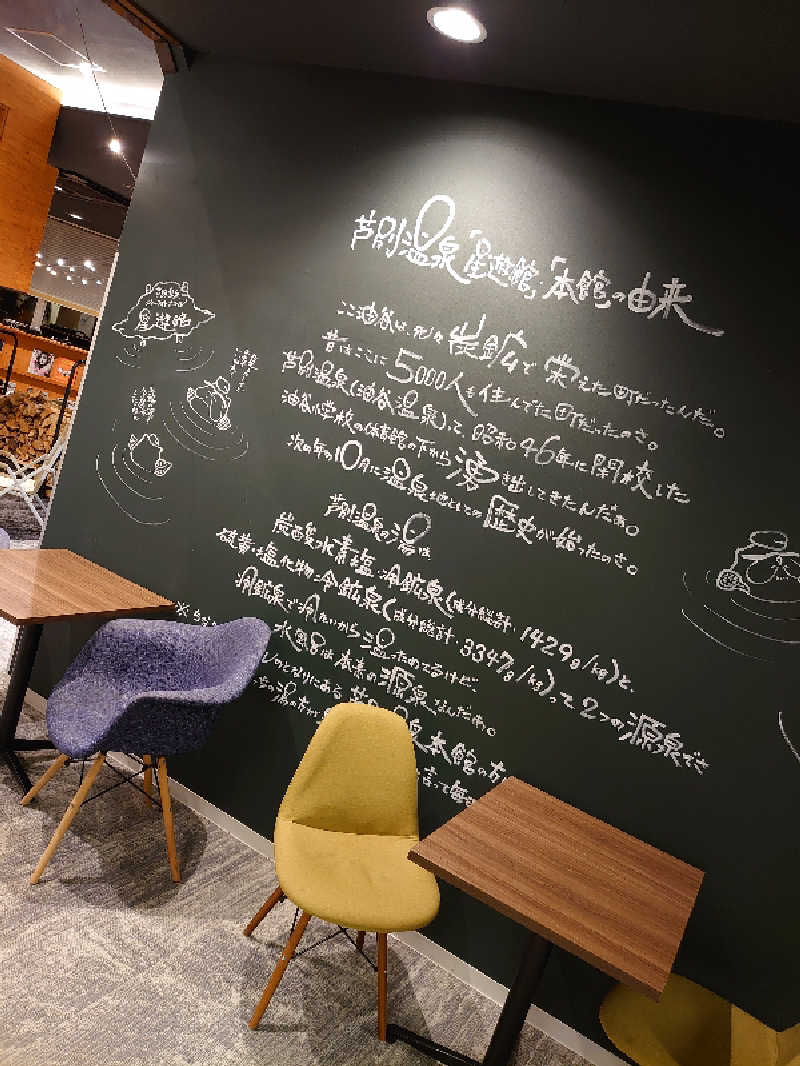 芦別温泉「星遊館」・「本館」の由来
ここ油谷は、元々炭鉱で栄えた町だったんだ。
昔はここに5000人も住んでた町だったのさ。
芦別温泉(油谷温泉)って、昭和46年に閉校した
油谷小学校の体育館の下から湧き出してきたんだぁ。
次の年の10月に温泉地としての歴史が始ったのさ。
芦別温泉の湯は
炭酸水素塩冷鉱泉(成分総計・1429g/kg)と、
硫黄・塩化物冷鉱泉(成分総計・3347g/kg)って2つの源泉でさ
冷鉱泉で冷たいから温っためてるけど、
水風呂は本来の源泉なんだぁ。
となりにある芦別温泉本館の方
の湯の方が
言って毎
星遊館